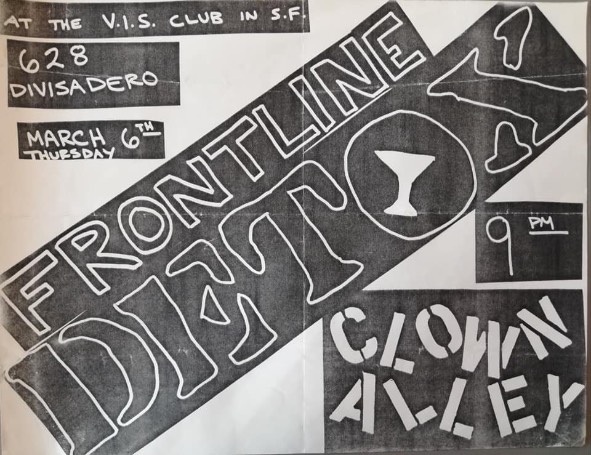 AT THE V.I.S. CLUB IN S.F.
628
DIVISADERO
MARCH 6TH
THURSDAY
FRONTLINE
DETOX
9 PM
CLOWN
ALLEY